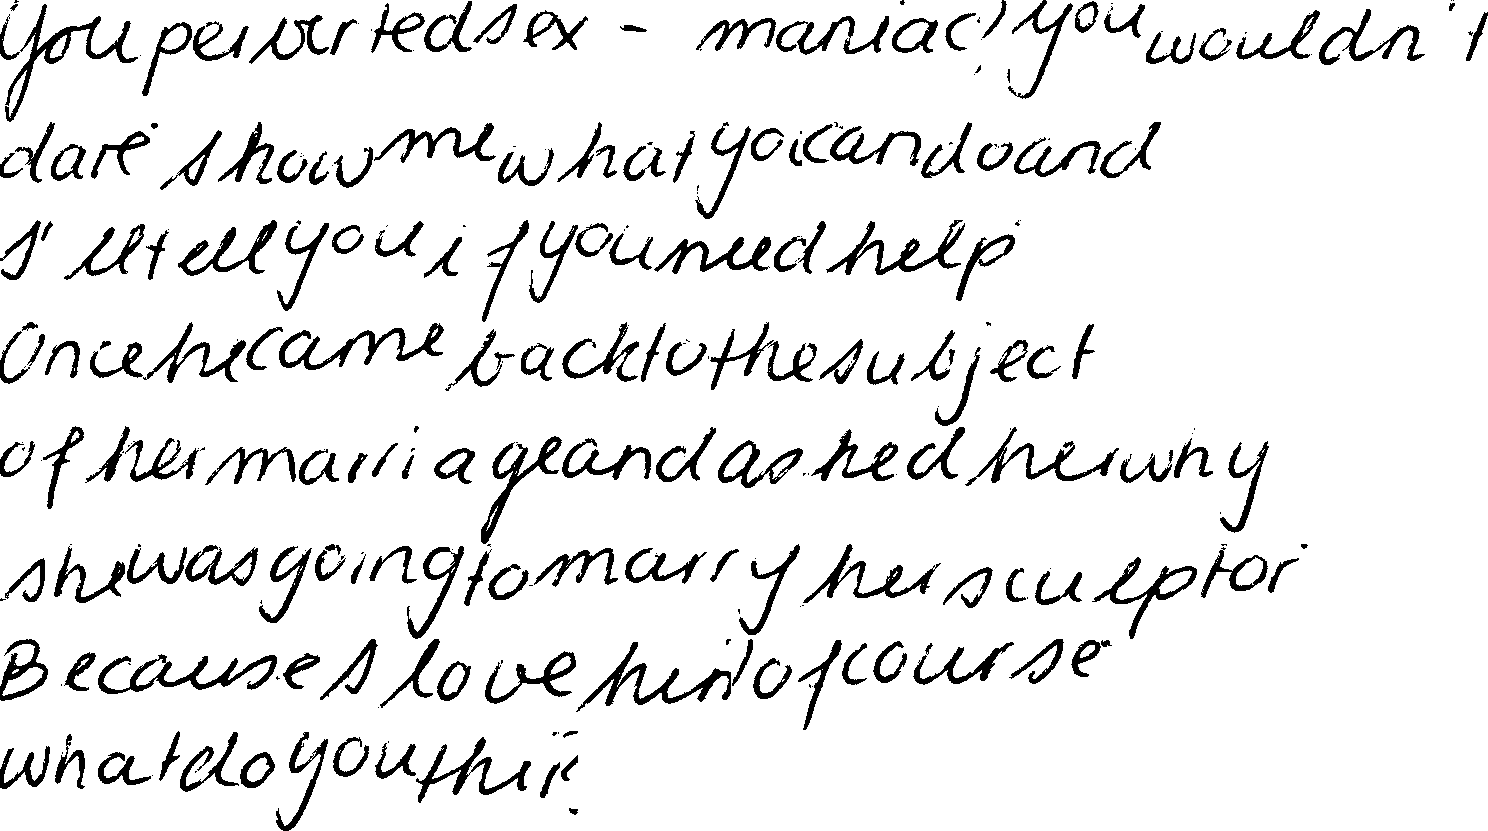 You perverted sex - maniac! you wouldn't
dare show me what you can do and
I'll tell you if you need help
Once he came back to the subject
of her marriage and asked her why
she was going to marry her sculptor
Because I love him of course
what do you